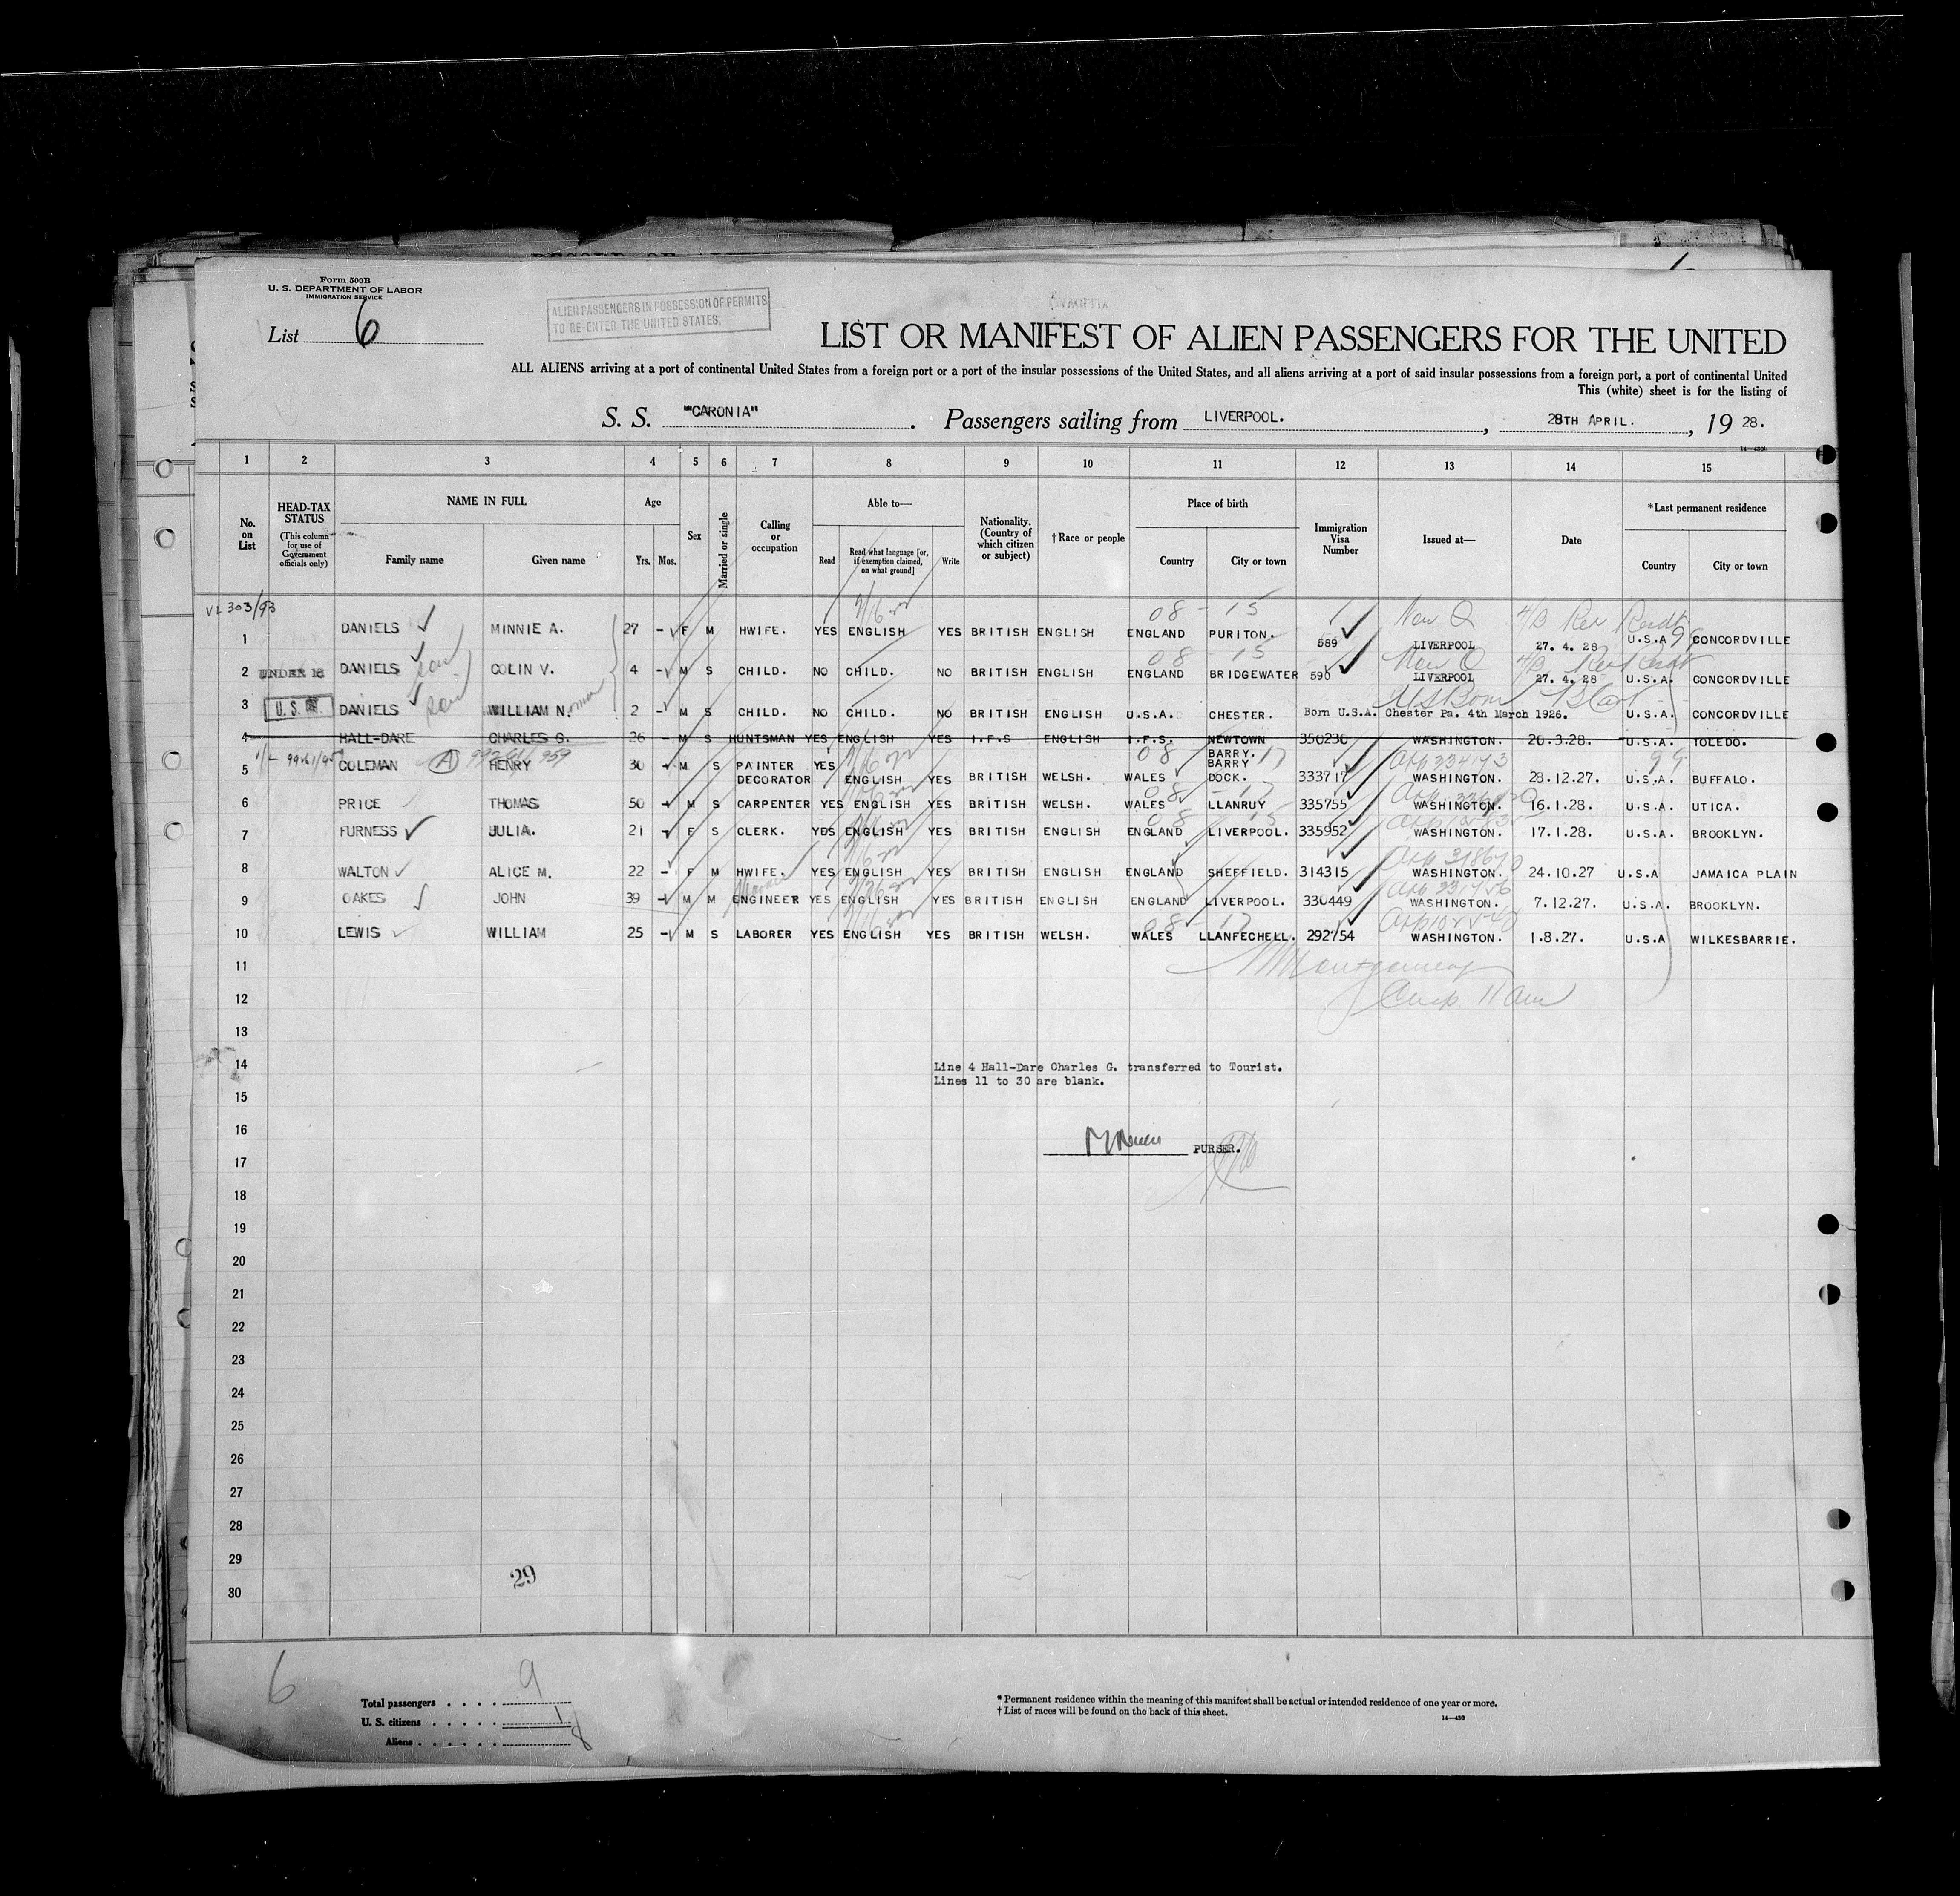 Form 500B
U. S. DEPARTMENT OF LABOR
IMMIGRATION SERVICE
List 6
ALIEN PASSENGERS IN POSSESSION OF PERMITS
TO RE-ENTER THE UNITED STATES.
LIST OR MANIFEST OF ALIEN PASSENGERS FOR THE UNITED
ALL ALIENS arriving at a port of continental United States from a foreign port or a port of the insular possessions of the United States, and all aliens arriving at a port of said insular possessions from a foreign port, a port of continental United
This (white) sheet is for the listing of
S. S. "CARONIA". Passengers sailing from LIVERPOOL., 28TH APRIL., 19 28.
14—430
1 2 3 4 5 6 7 8 9 10 11 12 13 14 15
No. on List
HEAD-TAX STATUS (This column for use of Government officials only)
NAME IN FULL Family name Given name
Age Yrs. Mos.
Sex
Married or single
Calling or occupation
Able to— Read Read what language [or, if exemption claimed, on what ground] Write
Nationality. (Country of which citizen or subject)
†Race or people
Place of birth Country City or town
Immigration Visa Number
Issued at—
Date
*Last permanent residence Country City or town
1 DANIELS MINNIE A. 27 - F M HWIFE. YES ENGLISH YES BRITISH ENGLISH ENGLAND PURITON. 589 LIVERPOOL 27. 4. 28 U.S.A CONCORDVILLE
2 UNDER 16 DANIELS COLIN V. 4 - M S CHILD. NO CHILD. NO BRITISH ENGLISH ENGLAND BRIDGEWATER 590 LIVERPOOL 27. 4. 28 U.S.A. CONCORDVILLE
3 U.S. DANIELS WILLIAM N. 2 - M S CHILD. NO CHILD. NO BRITISH ENGLISH U.S.A. CHESTER. Born U.S.A. Chester Pa. 4th March 1926. U.S.A. CONCORDVILLE
4 HALL-DARE CHARLES G. 26 - M S HUNTSMAN YES ENGLISH YES I.F.S ENGLISH I.F.S. NEWTOWN BARRY. 350230 WASHINGTON. 20.3.28. U.S.A. TOLEDO.
5 COLEMAN HENRY 30 - M S PAINTER DECORATOR YES ENGLISH YES BRITISH WELSH. WALES BARRY DOCK. 333717 WASHINGTON. 28.12.27. U.S.A. BUFFALO.
6 PRICE THOMAS 50 - M S CARPENTER YES ENGLISH YES BRITISH WELSH. WALES LLANRUY 335755 WASHINGTON. 16.1.28. U.S.A. UTICA.
7 FURNESS JULIA. 21 - F S CLERK. YES ENGLISH YES BRITISH ENGLISH ENGLAND LIVERPOOL. 335952 WASHINGTON. 17.1.28. U.S.A. BROOKLYN.
8 WALTON ALICE M. 22 - F M HWIFE. YES ENGLISH YES BRITISH ENGLISH ENGLAND SHEFFIELD. 314315 WASHINGTON. 24.10.27 U.S.A JAMAICA PLAIN
9 OAKES JOHN 39 - M M ENGINEER YES ENGLISH YES BRITISH ENGLISH ENGLAND LIVERPOOL. 330449 WASHINGTON. 7.12.27. U.S.A. BROOKLYN.
10 LEWIS WILLIAM 25 - M S LABORER YES ENGLISH YES BRITISH WELSH. WALES LLANFECHELL. 292754 WASHINGTON. 1.8.27. U.S.A WILKESBARRIE.
11
12
13
14
Line 4 Hall-Dare Charles G. transferred to Tourist.
Lines 11 to 30 are blank.
15
16
PURSER.
17
18
19
20
21
22
23
24
25
26
27
28
29
29
30
6
Total passengers . . . . . 9
U. S. citizens . . . . . 1
Aliens . . . . . . 8
* Permanent residence within the meaning of this manifest shall be actual or intended residence of one year or more.
† List of races will be found on the back of this sheet.
14—430